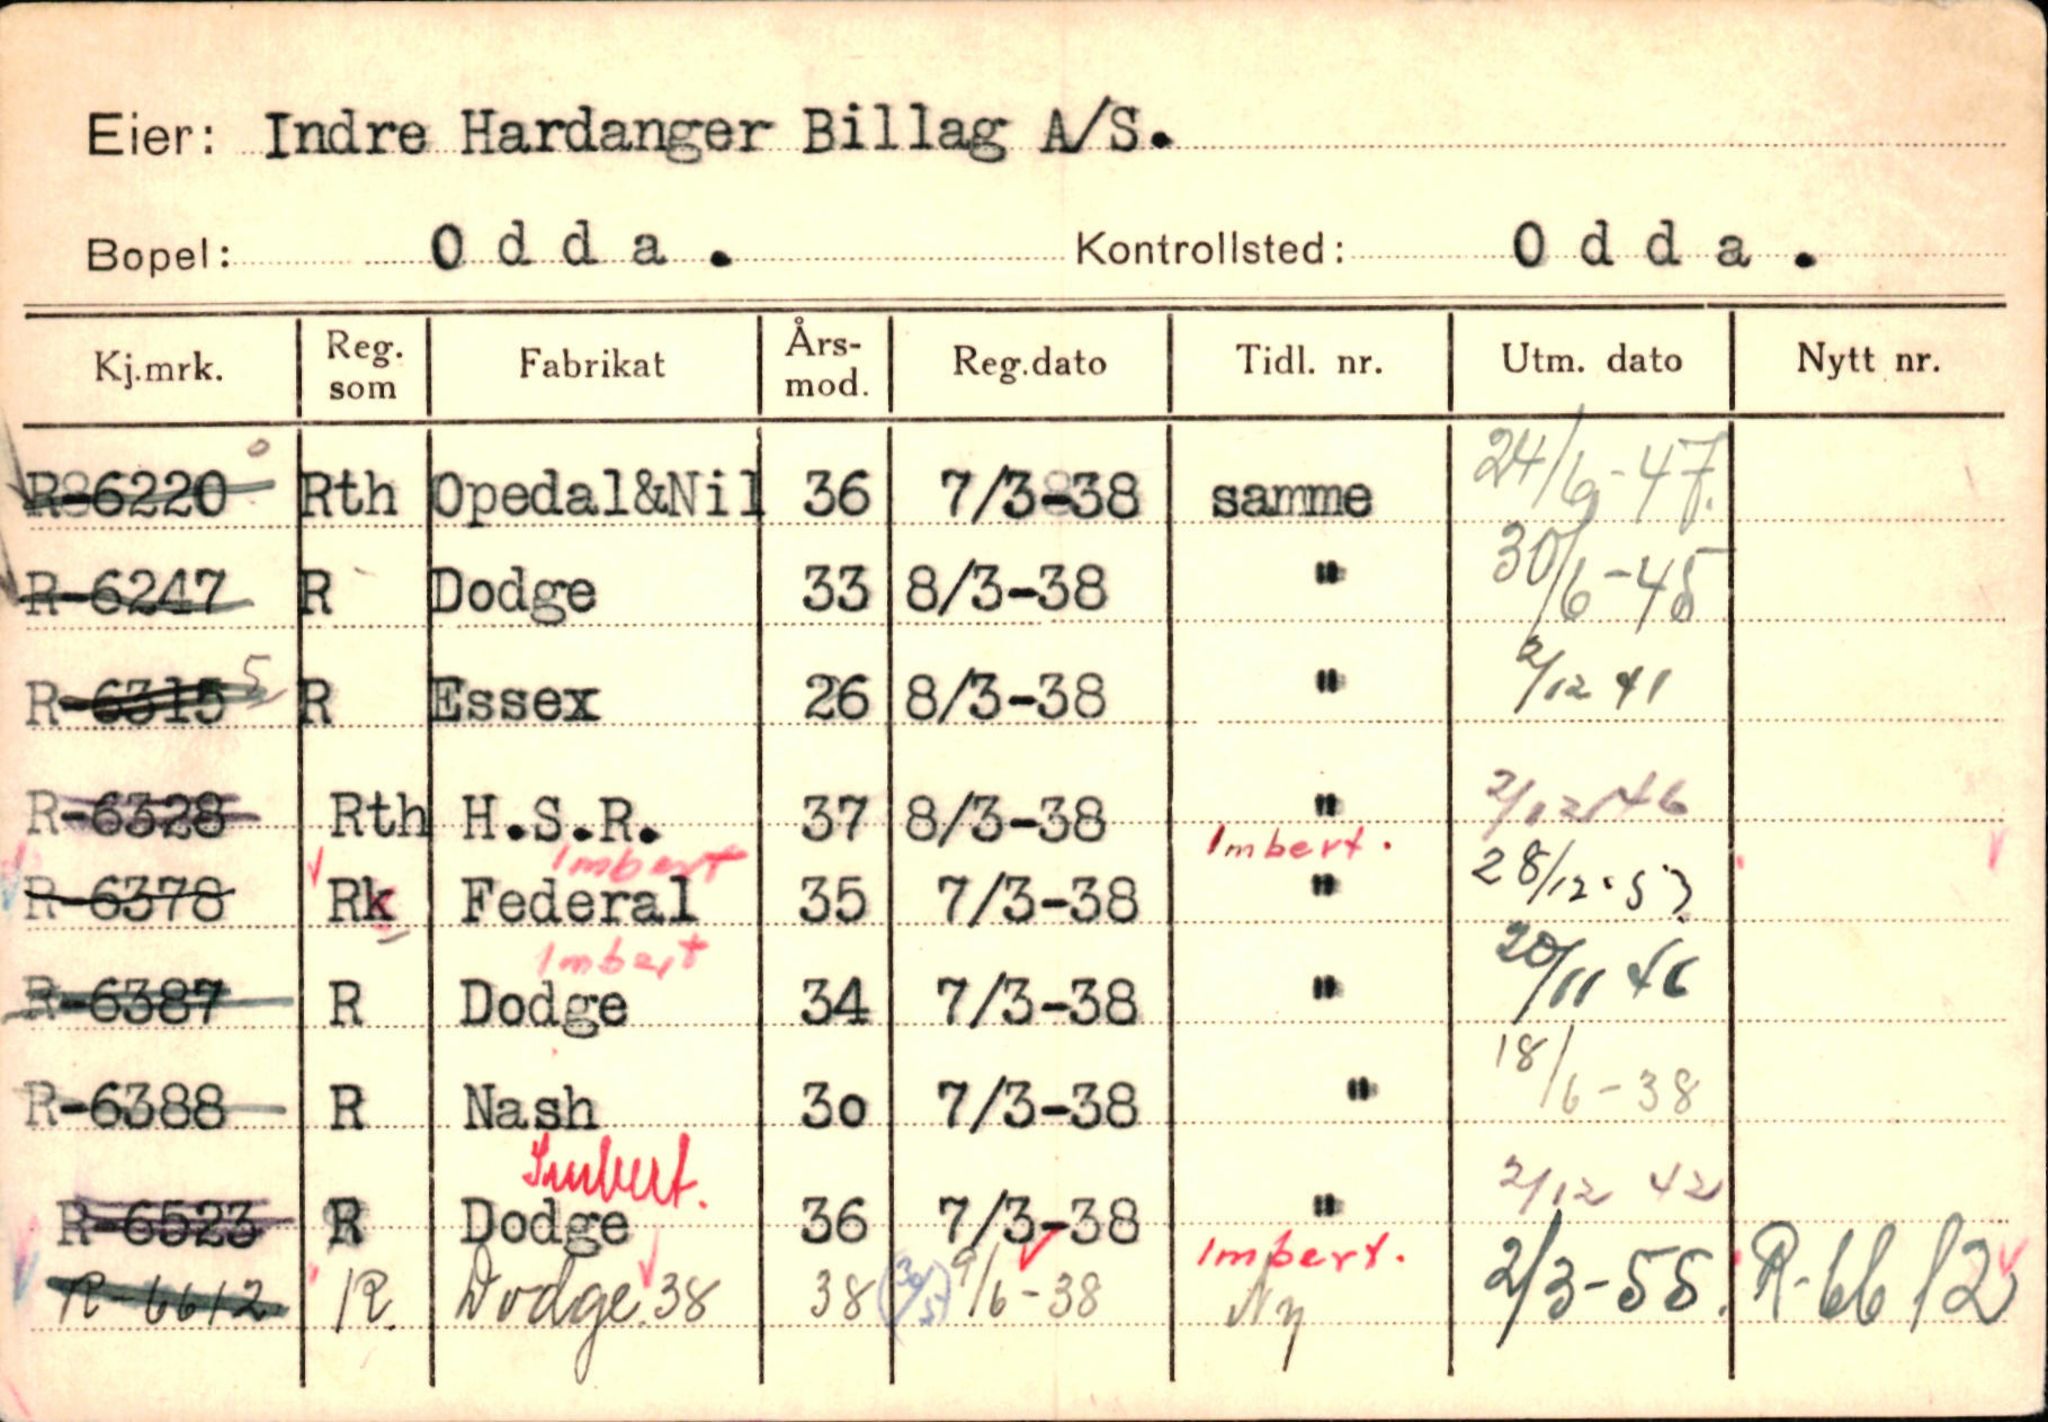 Eier: Indre Hardanger Billag A/S.
Bopel: Odda. Kontrollsted: Odda.
Kj.mrk. Reg. som Fabrikat Års-mod. Reg.dato Tidl. nr. Utm. dato Nytt nr.
R-6220 Rth Opedal&Nil 36 7/3-38 samme 24/6-47.
R-6247 R Dodge 33 8/3-38 " 30/6-45
R-6315 5 R Essex 26 8/3-38 " 2/12 41
R-6328 Rth H.S.R. 37 8/3-38 " 2/12 46
Imbert Imbert.
R-6378 Rk Federal 35 7/3-38 " 28/12-53
Imbert
R-6387 R Dodge 34 7/3-38 " 20/11 46
R-6388 R Nash 30 7/3-38 " 18/6-38
Imbert.
R-6523 R Dodge 36 7/3-38 " 2/12 42
Imbert.
R-6612 R. Dodge 38 38 9/6-38 Ny 2/3-55. R-6612